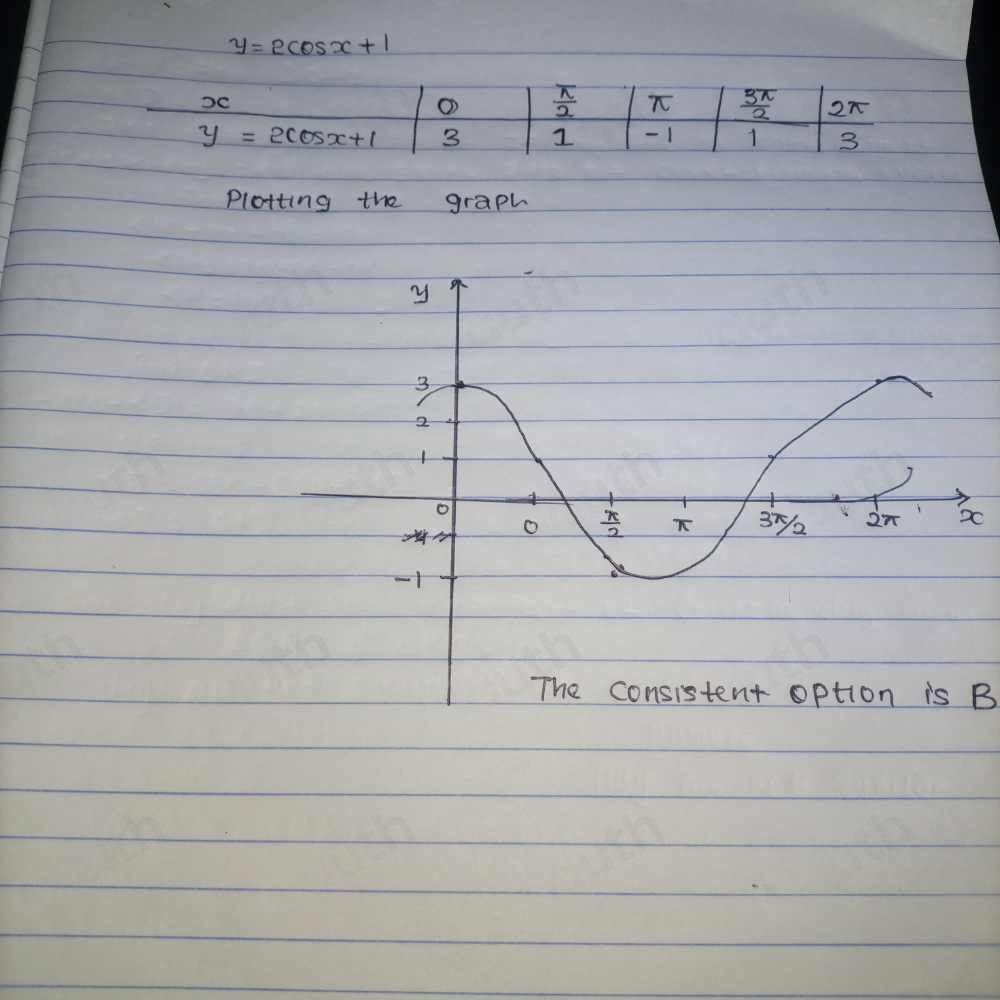 y = 2cosx + 1
x 0 π/2 π 3π/2 2π
y = 2cosx+1 3 1 -1 1 3
Plotting the graph
y
3
2
1
0 0 π/2 π 3π/2 2π x
-1
The consistent option is B